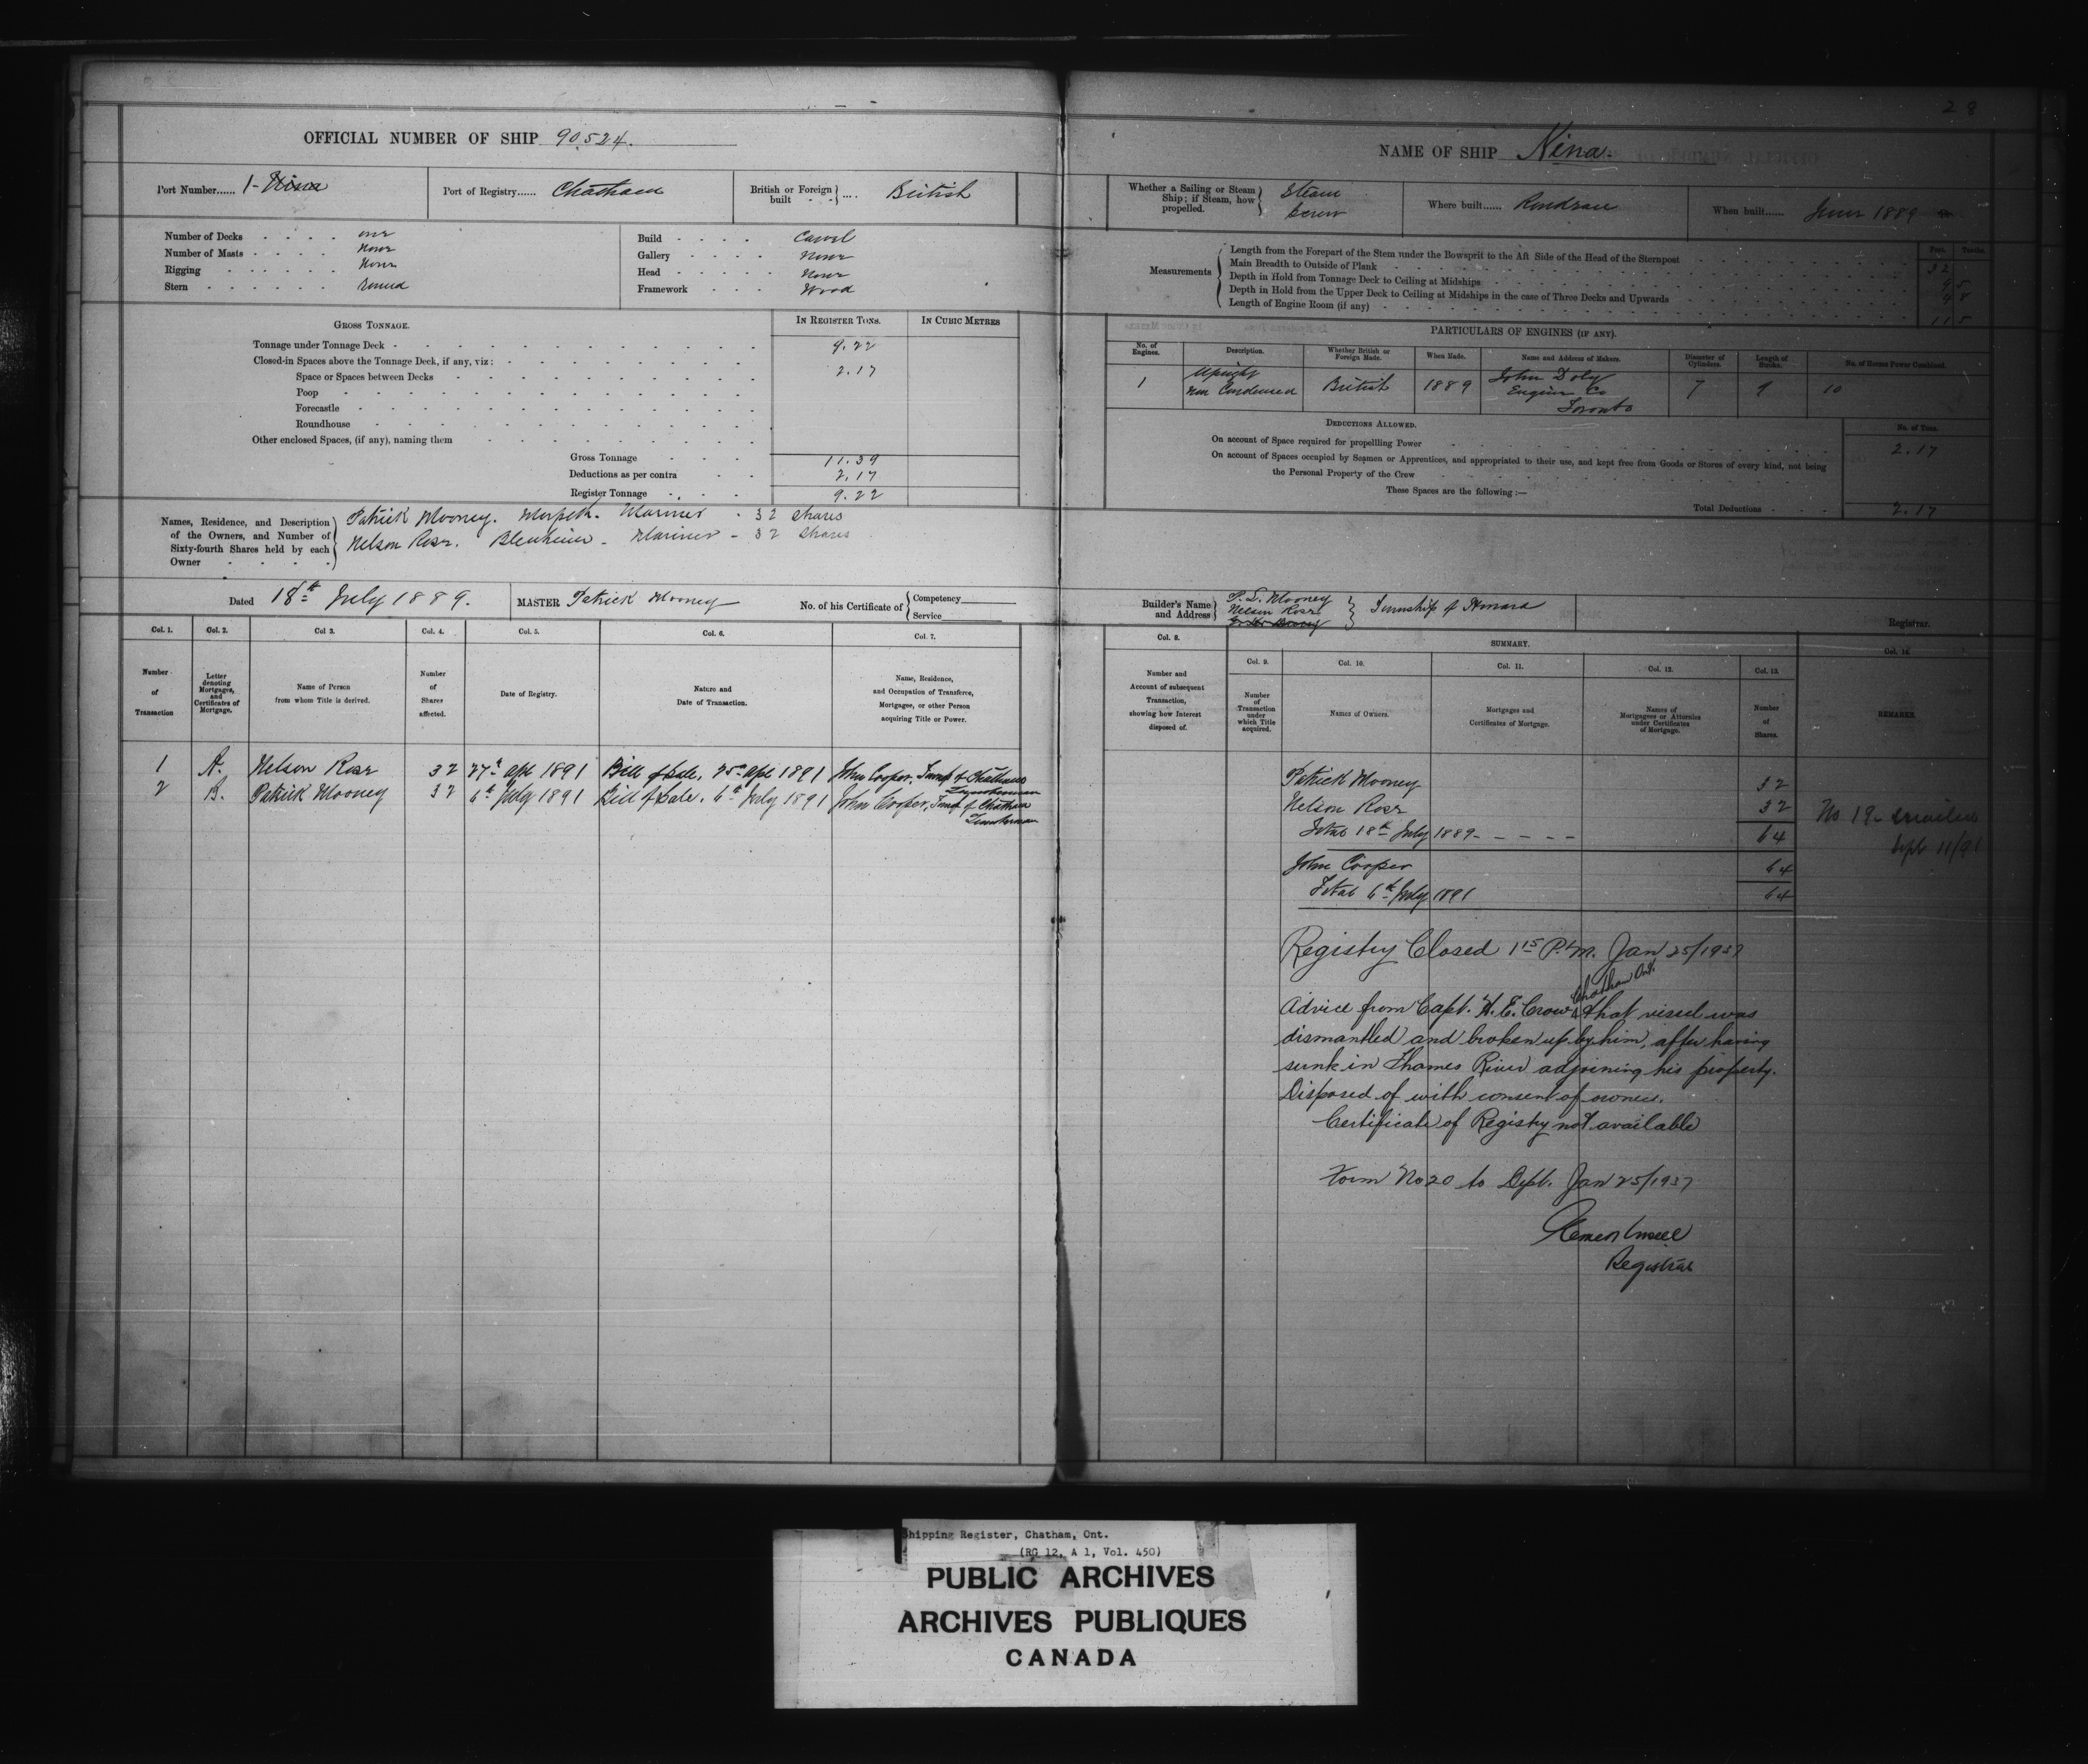 28
OFFICIAL NUMBER OF SHIP 90,524.
Port Number...... 1- Nina
Port of Registry...... Chatham
British or Foreign built .... British
Number of Decks one
Number of Masts None
Rigging None
Stern Round
Build Carvel
Gallery None
Head None
Framework Wood
GROSS TONNAGE.
IN REGISTER TONS.
IN CUBIC METRES
Tonnage under Tonnage Deck 9.22
Closed-in Spaces above the Tonnage Deck, if any, viz: 2.17
Space or Spaces between Decks
Poop
Forecastle
Roundhouse
Other enclosed Spaces, (if any), naming them
Gross Tonnage 11.39
Deductions as per contra 2.17
Register Tonnage 9.22
Names, Residence, and Description of the Owners, and Number of Sixty-fourth Shares held by each Owner
Patrick Mooney. Morpeth. Mariner - 32 shares
Nelson Rose. Blenheim - Mariner - 32 shares
Dated 18th July 1889.
MASTER Patrick Mooney
No. of his Certificate of Competency
Service
Col. 1. Col. 2. Col 3. Col. 4. Col. 5. Col. 6. Col. 7.
Number of Transaction
Letter denoting Mortgages, and Certificates of Mortgage.
Name of Person from whom Title is derived.
Number of Shares affected.
Date of Registry.
Nature and Date of Transaction.
Name, Residence, and Occupation of Transferee, Mortgagee, or other Person acquiring Title or Power.
1 A. Nelson Rose 32 27th Apl 1891 Bill of Sale, 25th Apl 1891 John Cooper, Township of Chatham
Lumberman
2 B. Patrick Mooney 32 6th July 1891 Bill of Sale. 6th July 1891 John Cooper, Township of Chatham
Lumberman
NAME OF SHIP Nina.
Whether a Sailing or Steam Ship; if Steam, how propelled. Steam Screw
Where built...... Rondeau
When built...... June 1889
Measurements
Feet. Tenths.
Length from the Forepart of the Stem under the Bowsprit to the Aft Side of the Head of the Sternpost 32
Main Breadth to Outside of Plank 9 5
Depth in Hold from Tonnage Deck to Ceiling at Midships 4 8
Depth in Hold from the Upper Deck to Ceiling at Midships in the case of Three Decks and Upwards
Length of Engine Room (if any) 11 5
PARTICULARS OF ENGINES (IF ANY).
No. of Engines.
Description.
Whether British or Foreign Made.
When Made.
Name and Address of Makers.
Diameter of Cylinders.
Length of Stroke.
No. of Horses Power Combined.
1 Upright Non Condensed British 1889 John Doty Engine Co Toronto 7 9 10
DEDUCTIONS ALLOWED.
No. of Tons.
On account of Space required for propellling Power 2.17
On account of Spaces occupied by Seamen or Apprentices, and appropriated to their use, and kept free from Goods or Stores of every kind, not being
the Personal Property of the Crew
These Spaces are the following :—
Total Deductions 2.17
Builder's Name and Address
P. L. Mooney
Nelson Rose
Township of Howard
Registrar.
Col. 8.
Number and Account of subsequent Transaction, showing how Interest disposed of.
SUMMARY.
Col. 9. Col. 10. Col. 11. Col. 12. Col. 13. Col. 14.
Number of Transaction under which Title acquired.
Names of Owners.
Mortgages and Certificates of Mortgage.
Names of Mortgagees or Attornies under Certificates of Mortgage.
Number of Shares.
REMARKS.
Patrick Mooney 32
Nelson Rose 32
Total 18th July 1889 - - - - - 64
No 19 - Sept 11/91
John Cooper 64
Total 6th July 1891 64
Registry Closed 1 15 P.M. Jan 25/1937
Chatham Ont.
Advice from Capt. H. E. Crow that vessel was
dismantled and broken up by him, after having
sunk in Thames River adjoining his property.
Disposed of with consent of owner.
Certificate of Registry not available
Form No 20 to Dept. Jan 25/1937
Registrar
Shipping Register, Chatham, Ont.
(RG 12, A 1, Vol. 450)
PUBLIC ARCHIVES
ARCHIVES PUBLIQUES
CANADA